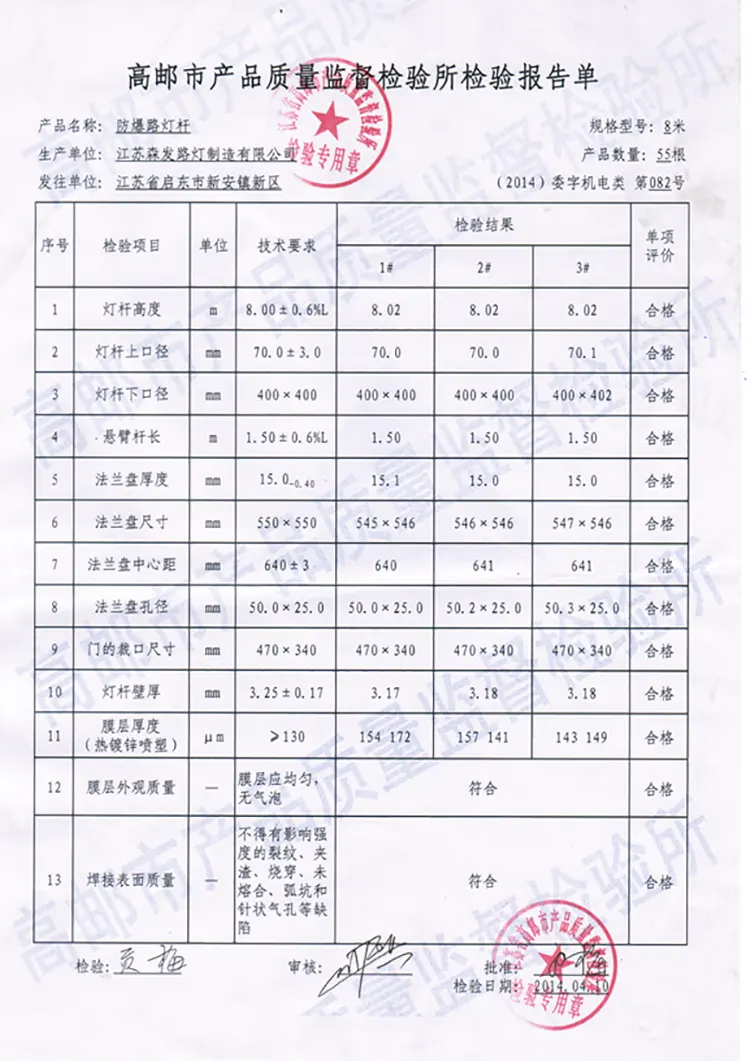 高邮市产品质量监督检验所检验报告单
产品名称: 防爆路灯杆 规格型号: 8米
生产单位: 江苏森发路灯制造有限公司 产品数量: 55根
发往单位: 江苏省启东市新安镇新区 (2014)委字机电类 第082号
序号 检验项目 单位 技术要求 检验结果 单项评价
1# 2# 3#
1 灯杆高度 m 8.00±0.6%L 8.02 8.02 8.02 合格
2 灯杆上口径 mm 70.0±3.0 70.0 70.0 70.1 合格
3 灯杆下口径 mm 400×400 400×400 400×400 400×402 合格
4 悬臂杆长 m 1.50±0.6%L 1.50 1.50 1.50 合格
5 法兰盘厚度 mm 15.0-0.40 15.1 15.0 15.0 合格
6 法兰盘尺寸 mm 550×550 545×546 546×546 547×546 合格
7 法兰盘中心距 mm 640±3 640 641 641 合格
8 法兰盘孔径 mm 50.0×25.0 50.0×25.0 50.2×25.0 50.3×25.0 合格
9 门的裁口尺寸 mm 470×340 470×340 470×340 470×340 合格
10 灯杆壁厚 mm 3.25±0.17 3.17 3.18 3.18 合格
11 膜层厚度 μm ≥130 154 172 157 141 143 149 合格
(热镀锌喷塑)
12 膜层外观质量 — 膜层应均匀, 符合 合格
无气泡
13 焊接表面质量 — 不得有影响强 符合 合格
度的裂纹、夹
渣、烧穿、未
熔合、弧坑和
针状气孔等缺
陷
检验: 贡梅 审核: 批准:
检验日期: 2014.04.10
江苏省高邮市产品质量监督检验所
检验专用章
江苏省高邮市产品质量监督检验所
检验专用章
高邮市产品质量监督检验所
高邮市产品质量监督检验所
高邮市产品质量监督检验所
高邮市产品质量监督检验所